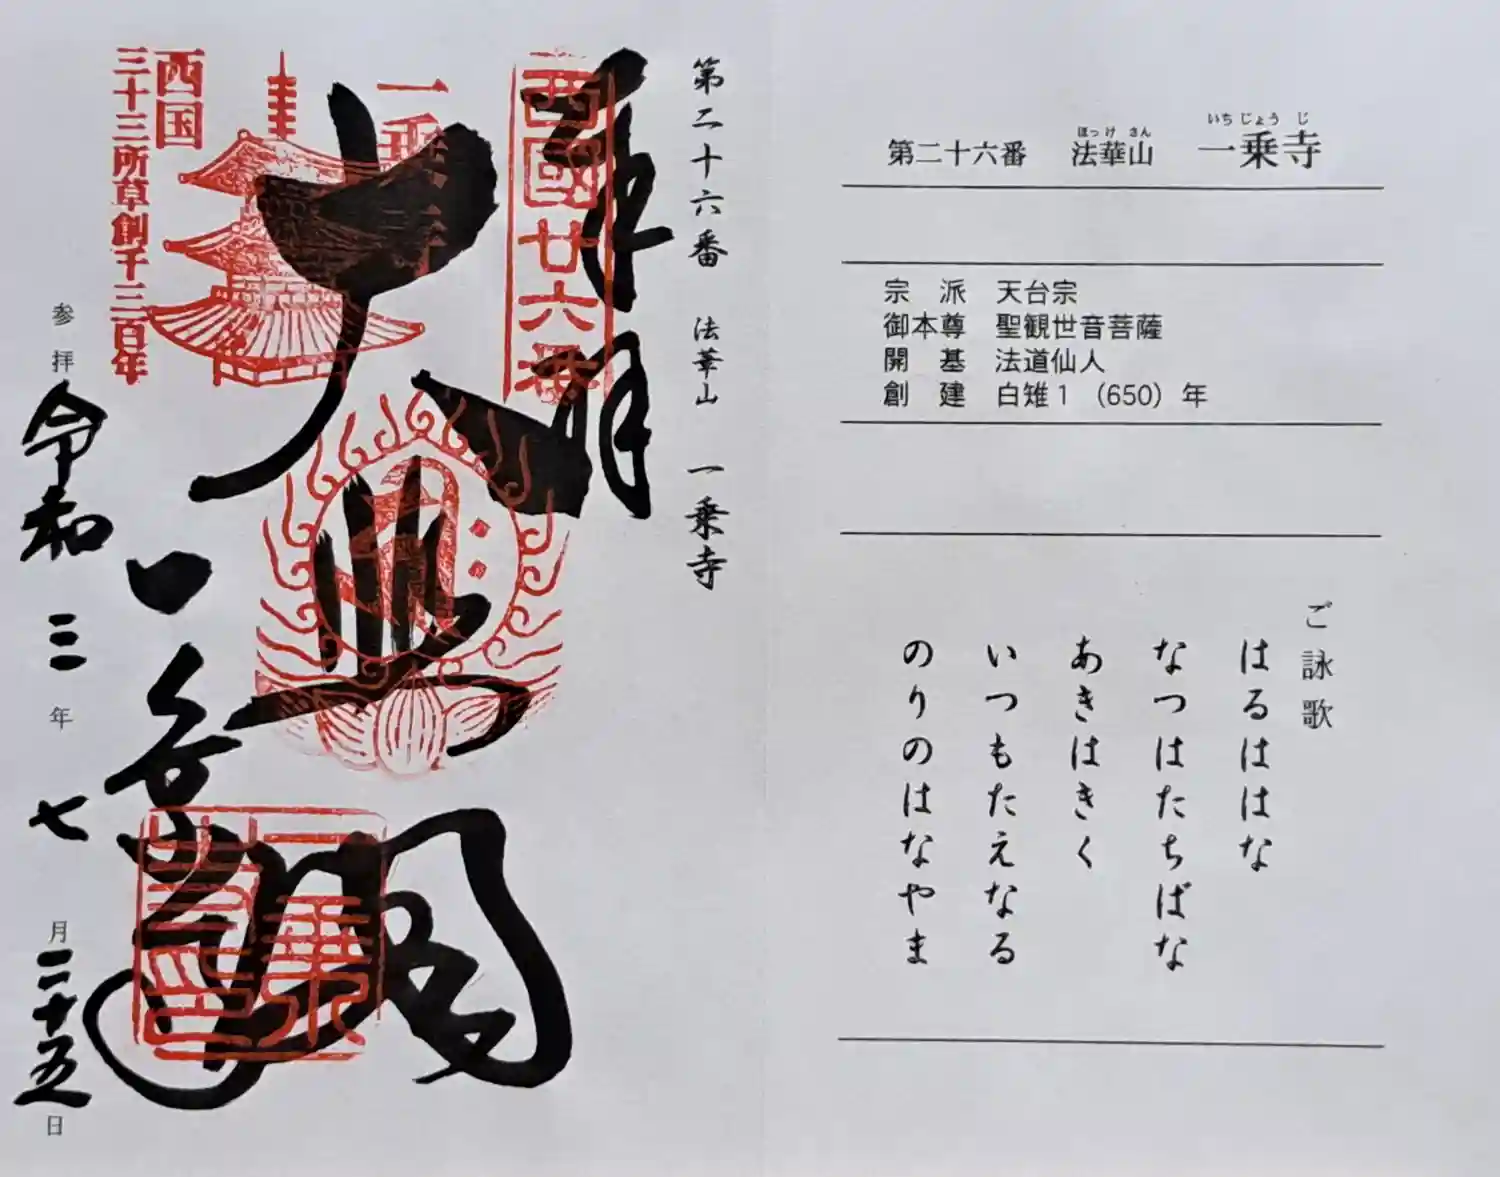 第二十六番 法華山 一乗寺
奉拝
西國廿六番
大悲閣
一乗寺
一乗寺
西国
三十三所草創千三百年
参拝 令和三年七月二十五日
いちじょうじ
ほっけさん
第二十六番 法華山 一乗寺
宗派 天台宗
御本尊 聖観世音菩薩
開基 法道仙人
創建 白雉1(650)年
ご詠歌
はるははな
なつはたちばな
あきはきく
いつもたえなる
のりのはなやま